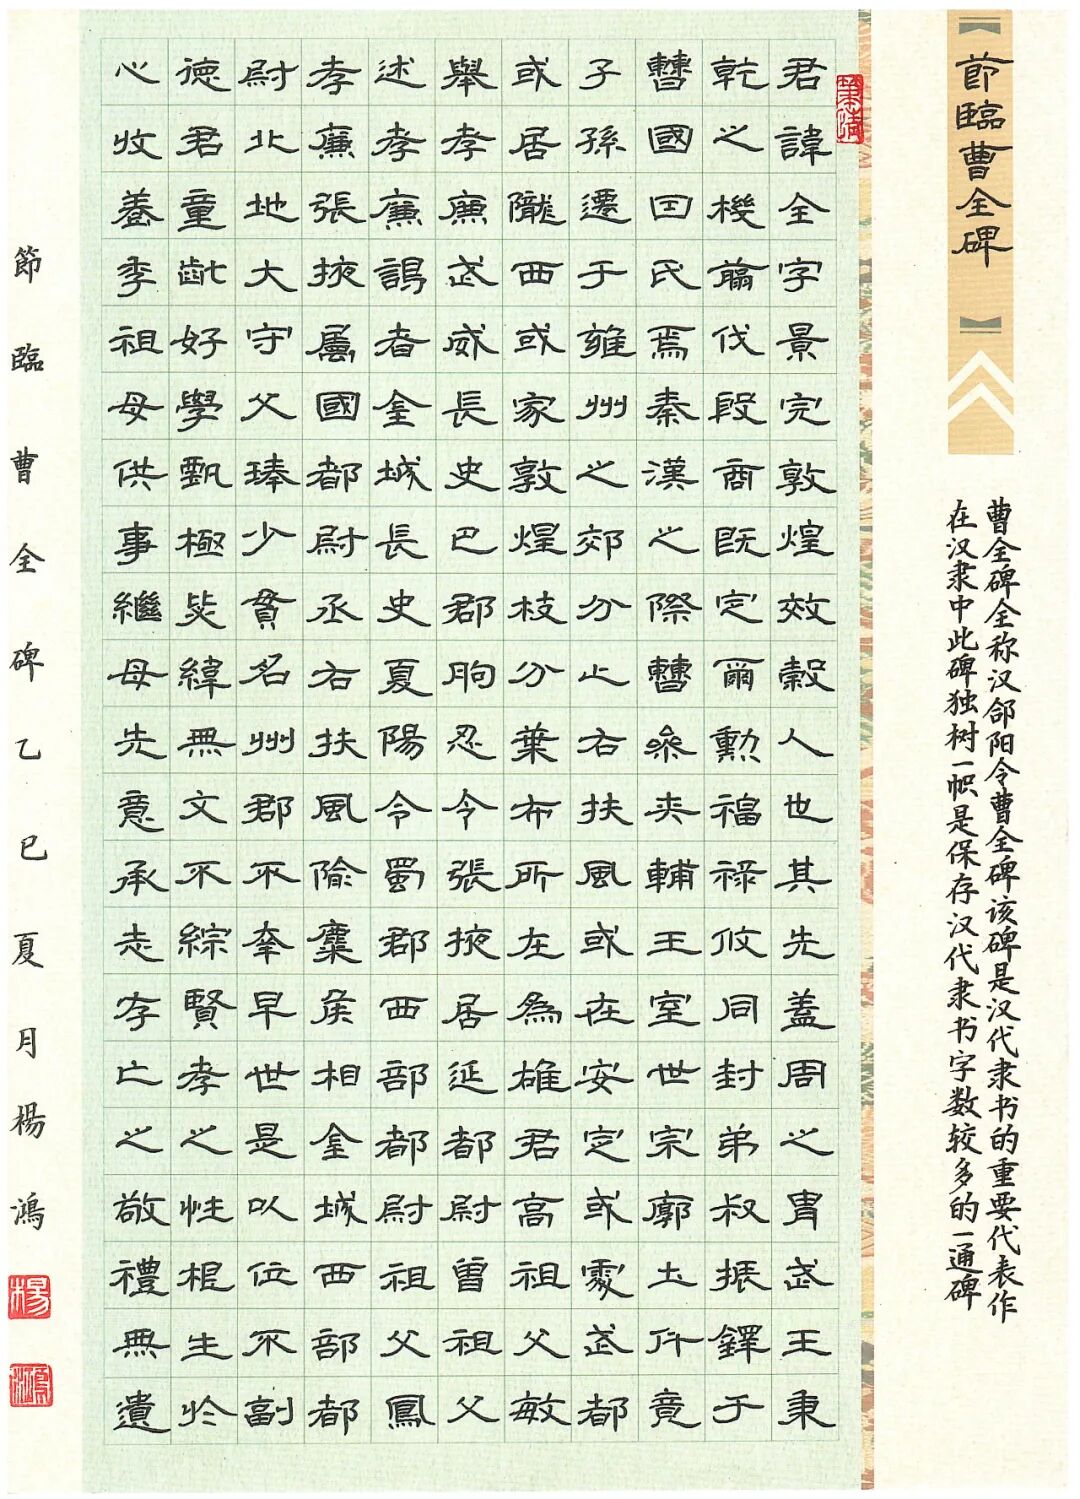 【節臨曹全碑】
曹全碑全称汉郃阳令曹全碑该碑是汉代隶书的重要代表作
在汉隶中此碑独树一帜是保存汉代隶书字数较多的一通碑
君諱全字景完敦煌效穀人也其先蓋周之胄武王秉
乾之機翦伐殷商既定爾勳福祿攸同封弟叔振鐸于
曹國因氏焉秦漢之際曹參夾輔王室世宗廓土斥竟
子孫遷于雍州之郊分止右扶風或在安定或處武都
或居隴西或家敦煌枝分葉布所在為雄君高祖父敏
舉孝廉武威長史巴郡朐忍令張掖居延都尉曾祖父
述孝廉謁者金城長史夏陽令蜀郡西部都尉祖父鳳
孝廉張掖屬國都尉丞右扶風隃麋侯相金城西部都
尉北地大守父琫少貫名州郡不幸早世是以位不副
德君童齔好學甄極毖緯無文不綜賢孝之性根生於
心收養季祖母供事繼母先意承志存亡之敬禮無遺
節臨曹全碑乙巳夏月楊鴻
楊
鴻